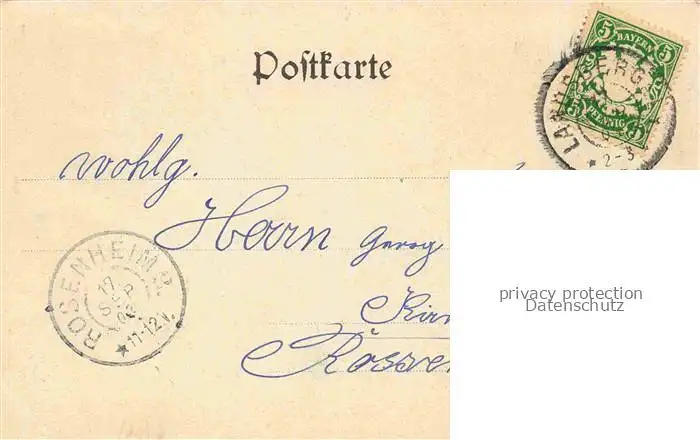 Postkarte
5 BAYERN 5
5 PFENNIG 5
BERG
* 2-3
wohlg.
Herrn Georg
ROSENHEIM
17
SEP
11-12 V.
privacy protection
Datenschutz